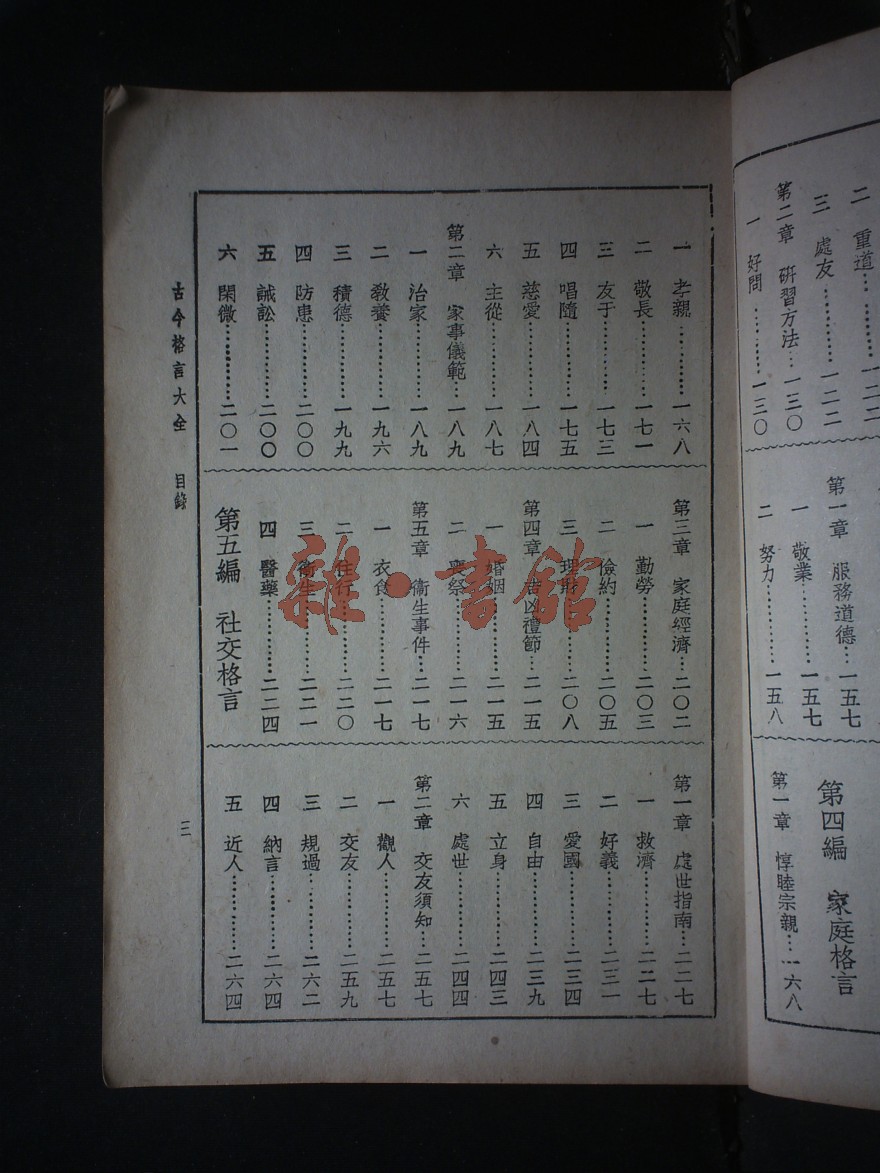 二 重道…一二二
三 處友…………一二二
第二章 研習方法…一三〇
一 好問…………一三〇
第一章 服務道德…一五七
一 敬業…………一五七
二 努力…………一五八
第四編 家庭格言
第一章 惇睦宗親…一六八
一 孝親…………一六八
二 敬長…………一七一
三 友于…………一七三
四 唱隨…………一七五
五 慈愛…………一八四
六 主從…………一八七
第二章 家事儀範…一八九
一 治家…………一八九
二 敎養…………一九六
三 積德…………一九九
四 防患…………二〇〇
五 誡訟…………二〇〇
六 閑微…………二〇一
第三章 家庭經濟…二〇二
一 勤勞…………二〇三
二 儉約…………二〇五
三 理財…………二〇八
第四章 吉凶禮節…二一五
一 婚姻…………二一五
二 喪祭…………二一六
第五章 衞生事件…二一七
一 衣食…………二一七
二 住行…………二二〇
三 衞生…………二二一
四 醫藥…………二二四
第五編 社交格言
第一章 處世指南…二二七
一 救濟…………二二七
二 好義…………二三一
三 愛國…………二三四
四 自由…………二三九
五 立身…………二四三
六 處世…………二四四
第二章 交友須知…二五七
一 觀人…………二五七
二 交友…………二五九
三 規過…………二六二
四 納言…………二六四
五 近人…………二六四
古今格言大全 目錄
三
雜·書館